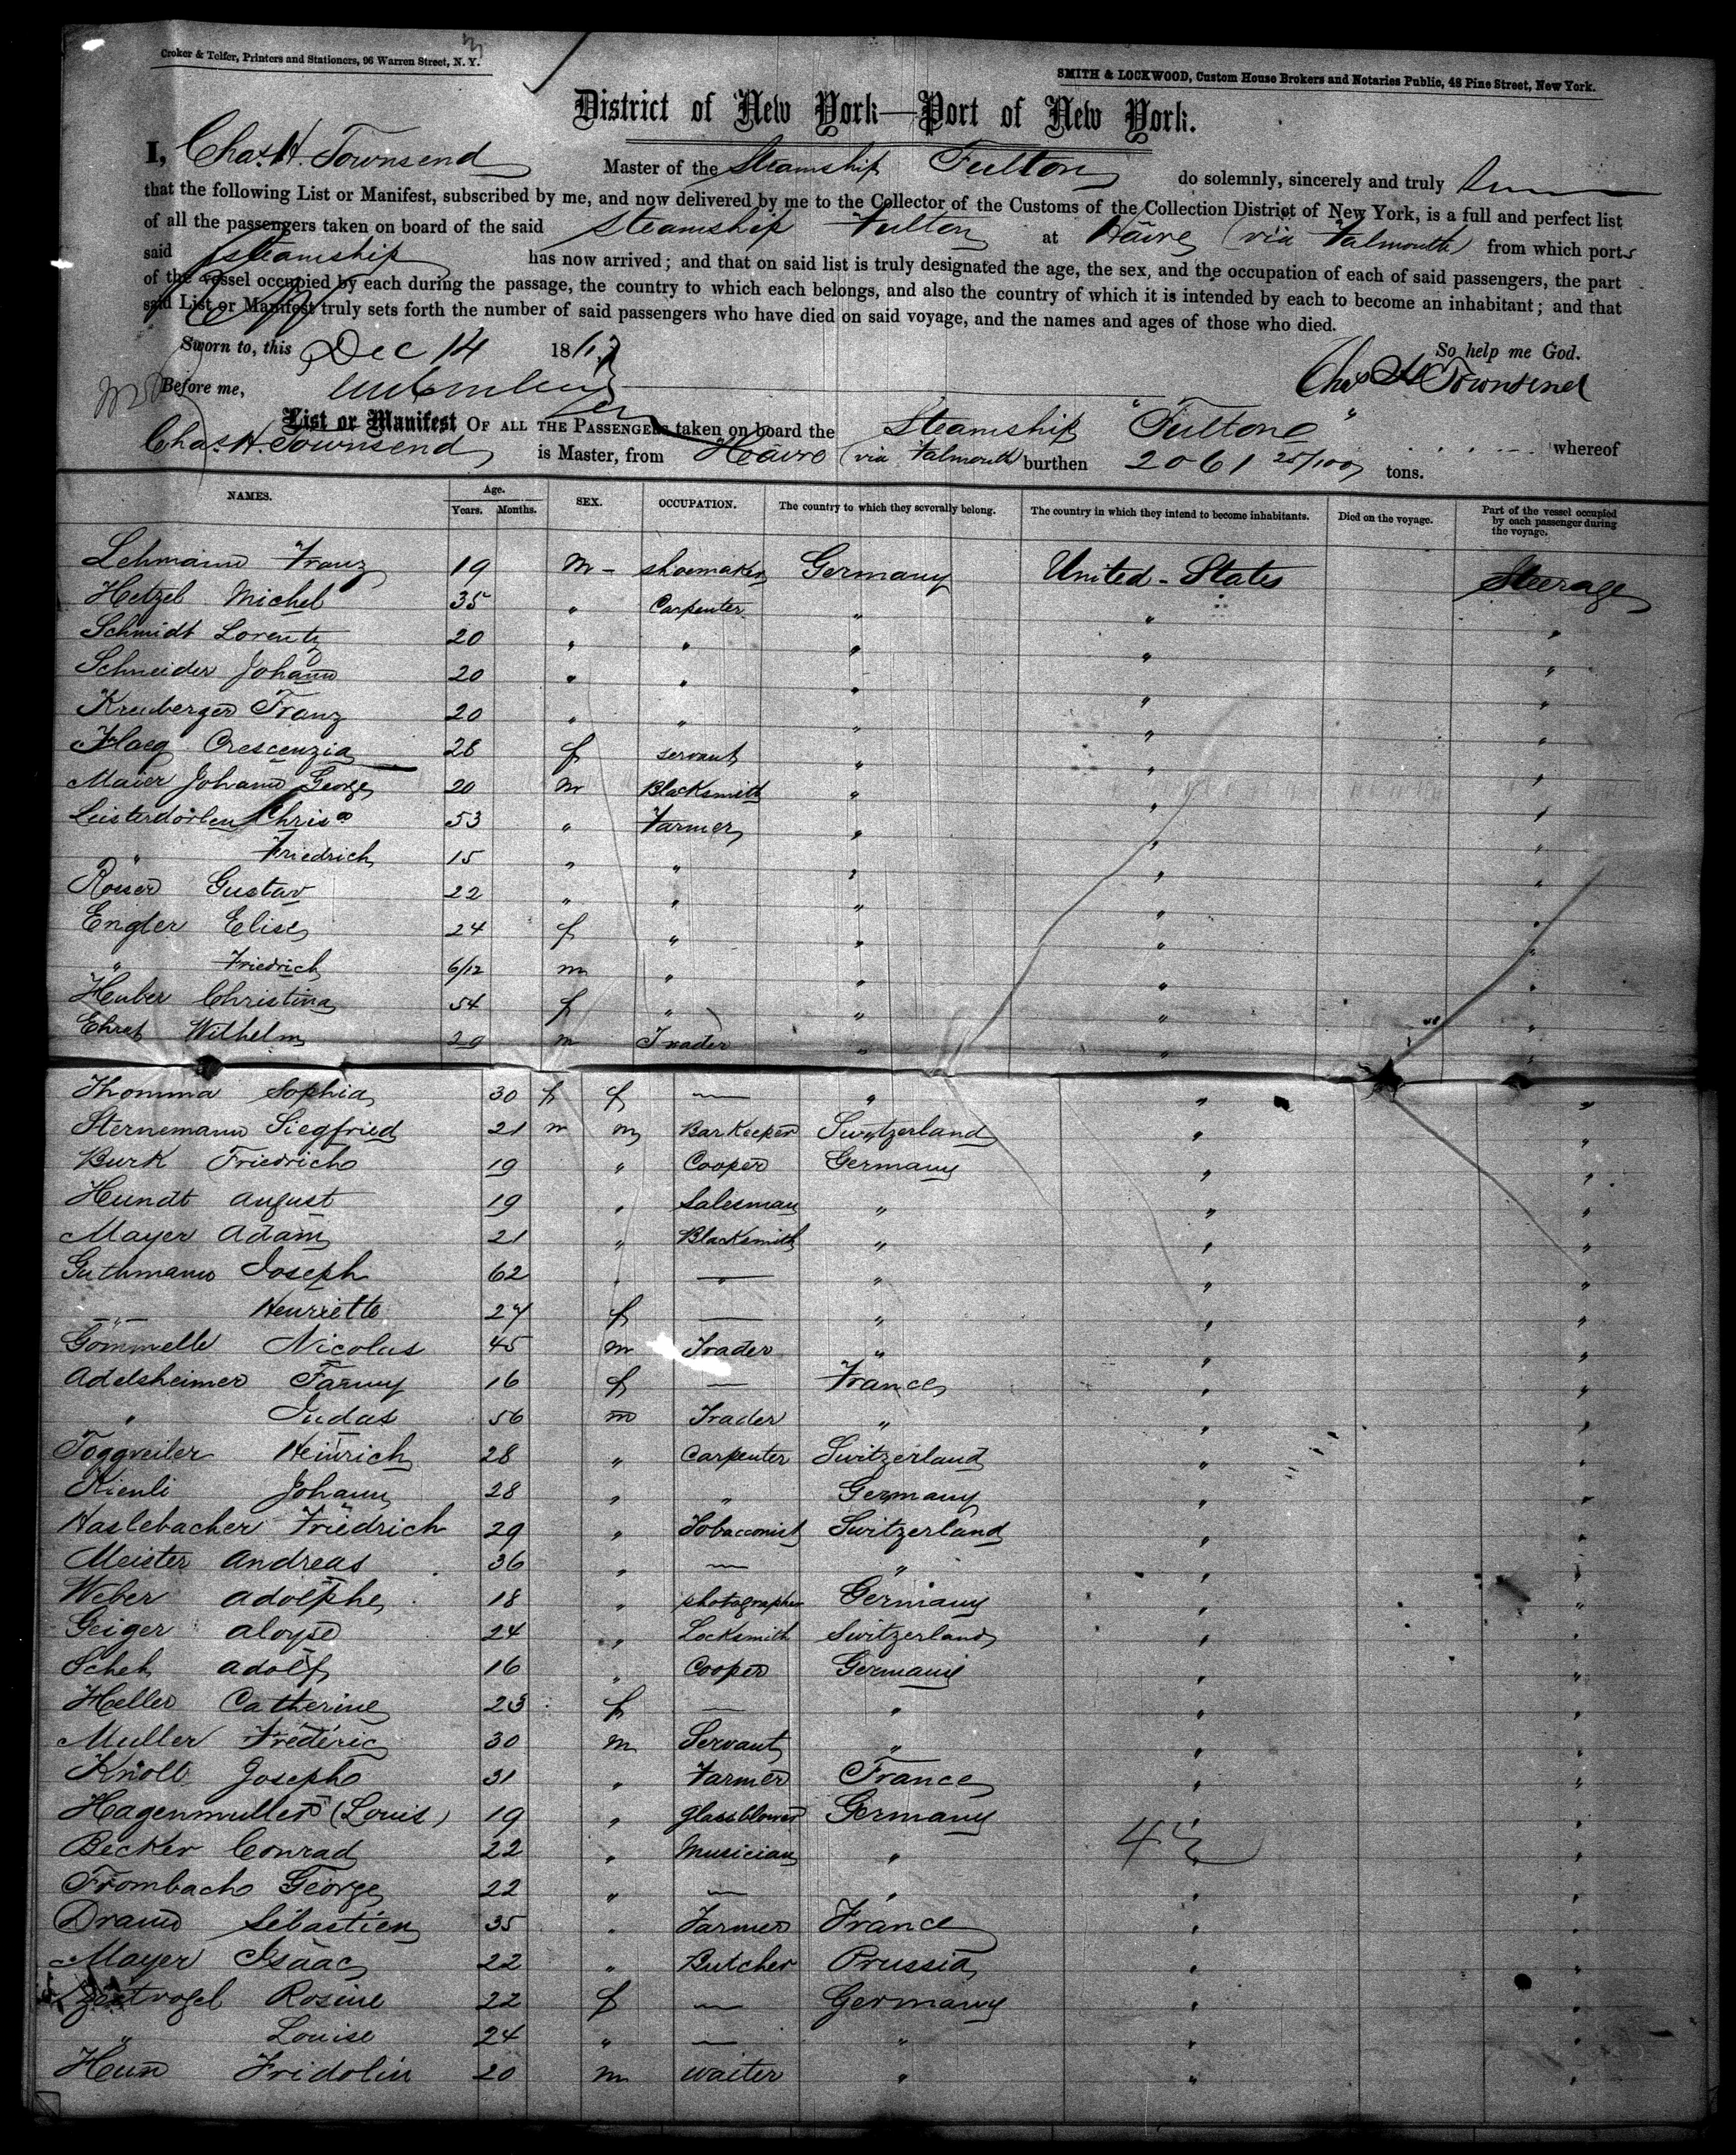 Croker & Telfer, Printers and Stationers, 96 Warren Street, N. Y.
SMITH & LOCKWOOD, Custom House Brokers and Notaries Public, 48 Pine Street, New York.
District of New York—Port of New York.
I, Chas. H. Townsend Master of the Steamship Fulton do solemnly, sincerely and truly
that the following List or Manifest, subscribed by me, and now delivered by me to the Collector of the Customs of the Collection District of New York, is a full and perfect list
of all the passengers taken on board of the said Steamship Fulton at Hâvre (via Falmouth) from which ports
said Steamship has now arrived; and that on said list is truly designated the age, the sex, and the occupation of each of said passengers, the part
of the vessel occupied by each during the passage, the country to which each belongs, and also the country of which it is intended by each to become an inhabitant; and that
said List or Manifest truly sets forth the number of said passengers who have died on said voyage, and the names and ages of those who died.
Sworn to, this Dec 14 186 So help me God.
Before me, Chas H Townsend
List or Manifest OF ALL THE PASSENGERS taken on board the Steamship "Fulton" whereof
Chas. H. Townsend is Master, from Hâvre (via Falmouth) burthen 2061 25/100 tons.
NAMES. Age. Years. Months. SEX. OCCUPATION. The country to which they severally belong. The country in which they intend to become inhabitants. Died on the voyage. Part of the vessel occupied by each passenger during the voyage.
Lehmann Franz 19 M - shoemaker Germany United - States Steerage
Hetzel Michel 35 " Carpenter " " "
Schmidt Lorentz 20 " " " " "
Schneider Johann 20 " " " " "
Kreuberger Franz 20 " " " " "
Haeg Crescenzia 28 f servant " " "
Maier Johann George 20 m Blacksmith " " "
Leisterdörlen Chrisn 53 " Farmer " " "
" Friedrich 15 " " " " "
Roser Gustav 22 " " " " "
Engler Elise 24 f " " " "
" Friedrich 6/12 m " " " "
Huber Christina 54 f " " " "
Ehret Wilhelm 29 m Trader " " "
Thomma Sophia 30 f f — " " "
Sternemann Siegfried 21 m m BarKeeper Switzerland " "
Burk Friedrich 19 " Cooper Germany " "
Hundt August 19 " Salesman " " "
Mayer Adam 21 " Blacksmith " " "
Guthmann Joseph 62 " — " " "
" Henriette 27 f — " " "
Gömmelle Nicolas 45 m Trader " " "
Adelsheimer Fanny 16 f — France " "
" Judas 56 m Trader " " "
Toggveiler Heinrich 28 " Carpenter Switzerland " "
Kienli Johann 28 " " Germany " "
Haslebacher Friedrich 29 " Tobacconist Switzerland " "
Meister Andreas 36 " — " " "
Weber Adolphe 18 " photographer Germany " "
Geiger Aloyse 24 " Locksmith Switzerland " "
Scheh Adolf 16 " Cooper Germany " "
Heller Catherine 23 f — " " "
Muller Fréderic 30 m Servant " " "
Knöll Joseph 31 " Farmer France " "
Hagenmuller (Louis) 19 " glassblower Germany " "
Becker Conrad 22 " Musician " " "
Frombach George 22 " — " " "
Draun Sébastien 35 " Farmer France " "
Mayer Isaac 22 " Butcher Prussia " "
Rosine 22 f — Germany " "
" Louise 24 " — " " "
Hun Fridolin 20 m waiter " " "